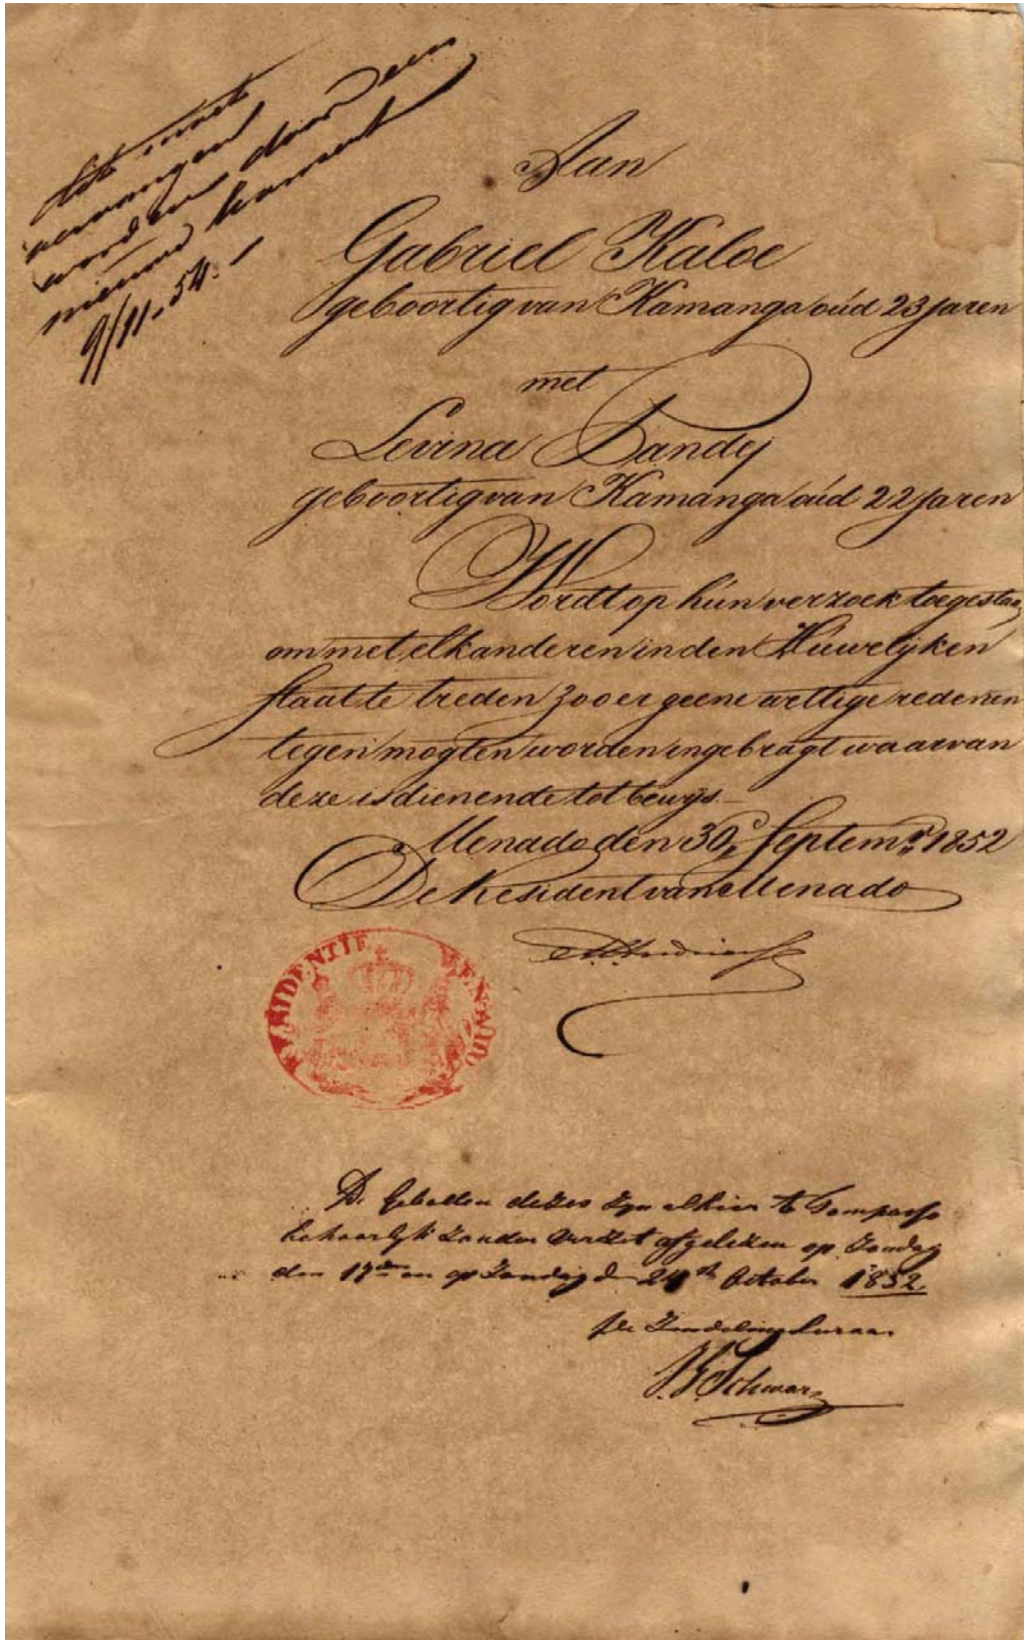 dit moet
vervangen
worden door een
nieuw konsent
9/11. 54. -
Aan
Gabriel Kaloe
geboortig van Kamanga oúd 23 jaren
met
Levina Sandej
geboortig van Kamanga oúd 22 jaren
Wordt op hún verzoek toegestaan
om met elkanderen in den Húwelijken
staat te treden zoo er geene wettige redenen
tegen mogten worden ingebragt waarvan
deze is dienende tot bewijs.—
Menado den 30n Septemr. 1852
De Resident van Menado
RESIDENTIE MENADO
De Geboden dezes zyn alhier te Tompasso
behoorlyk zonder verzet afgelezen op Zondag
den 17den en op Zondag d 24st October 1852.
de Zendelingleeraar
J. G. Schwarz